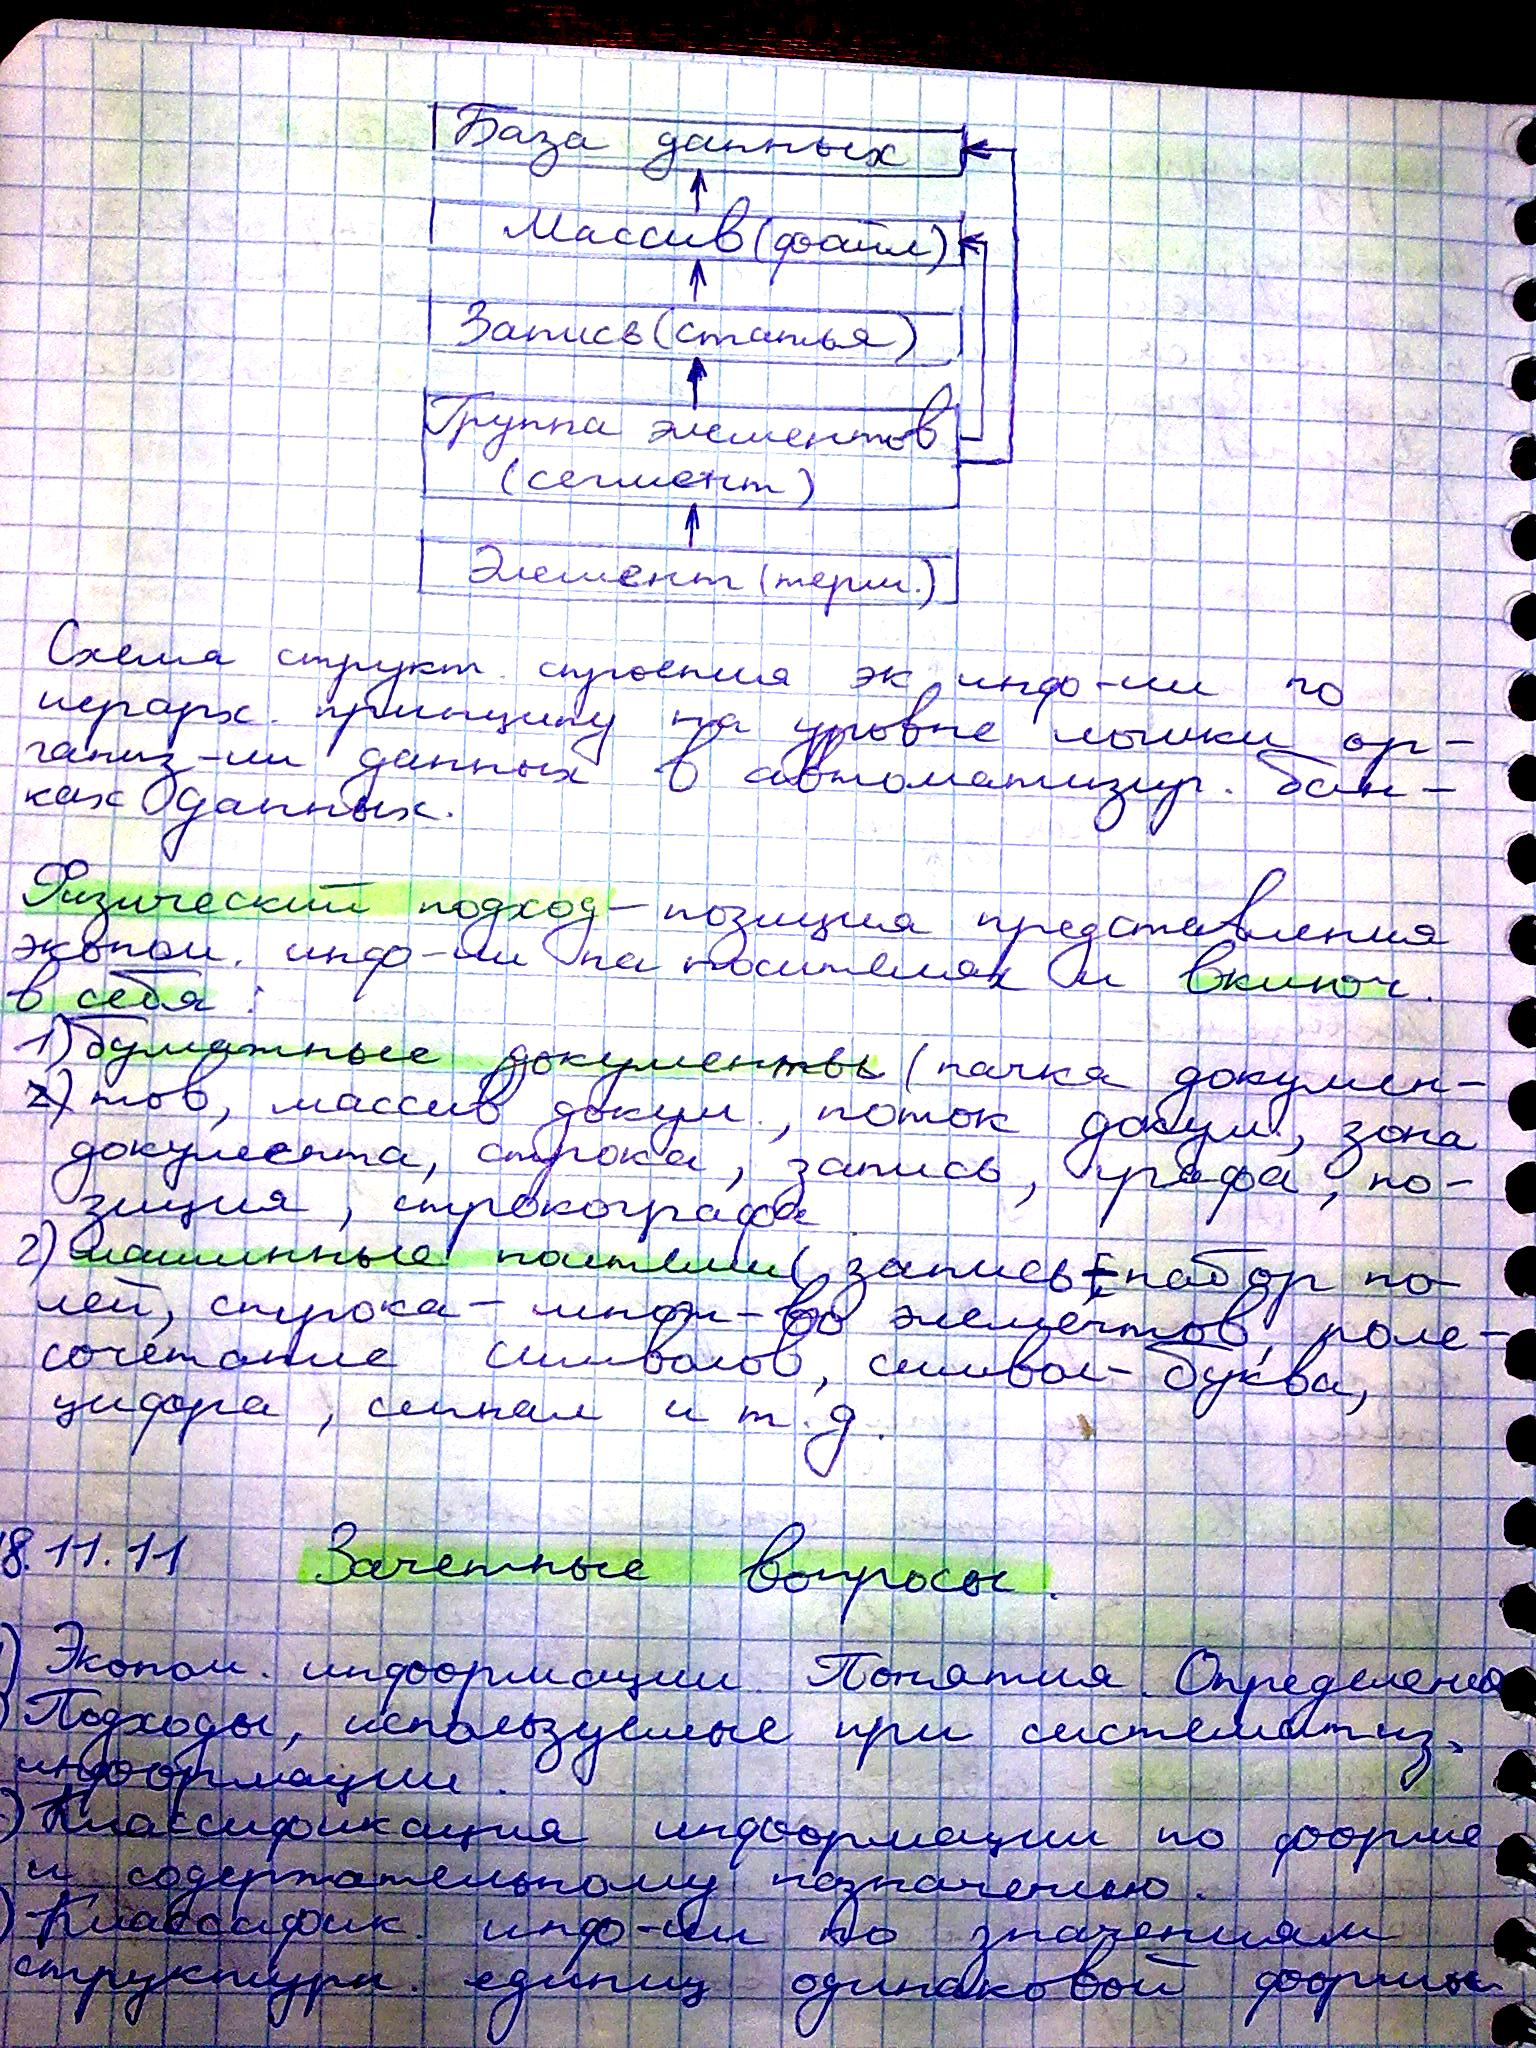 База данных
Массив (файл)
Запись (статья)
Группа элементов
(сегмент)
Элемент (терм.)
Схема структ. строения эк инфо-ии по
иерарх. принципу на уровне логики ор-
ганиз-ии данных в автоматизир. бан-
ках данных.
Физический подход - позиция представления
эконом. инф-ии на носителях и включ.
в себя :
1) бумажные документы (пачка докумен-
2) тов, массив докум., поток докум., зона
документа, строка, запись, графа, по-
зиция, строкографа
2) машинные носители ( запись - набор по-
лей, строка - множ-во элементов, поле -
сочетание символов, символ - буква,
цифра, сигнал и т.д.
18.11.11 Зачетные вопросы.
) Эконом. информации. Понятия. Определения
) Подходы, используемые при систематиз.
информации.
) Классификация информации по форме
и содержательному назначению.
) Классифик. инф-ии по значениям
структурн. единиц одинаковой формы